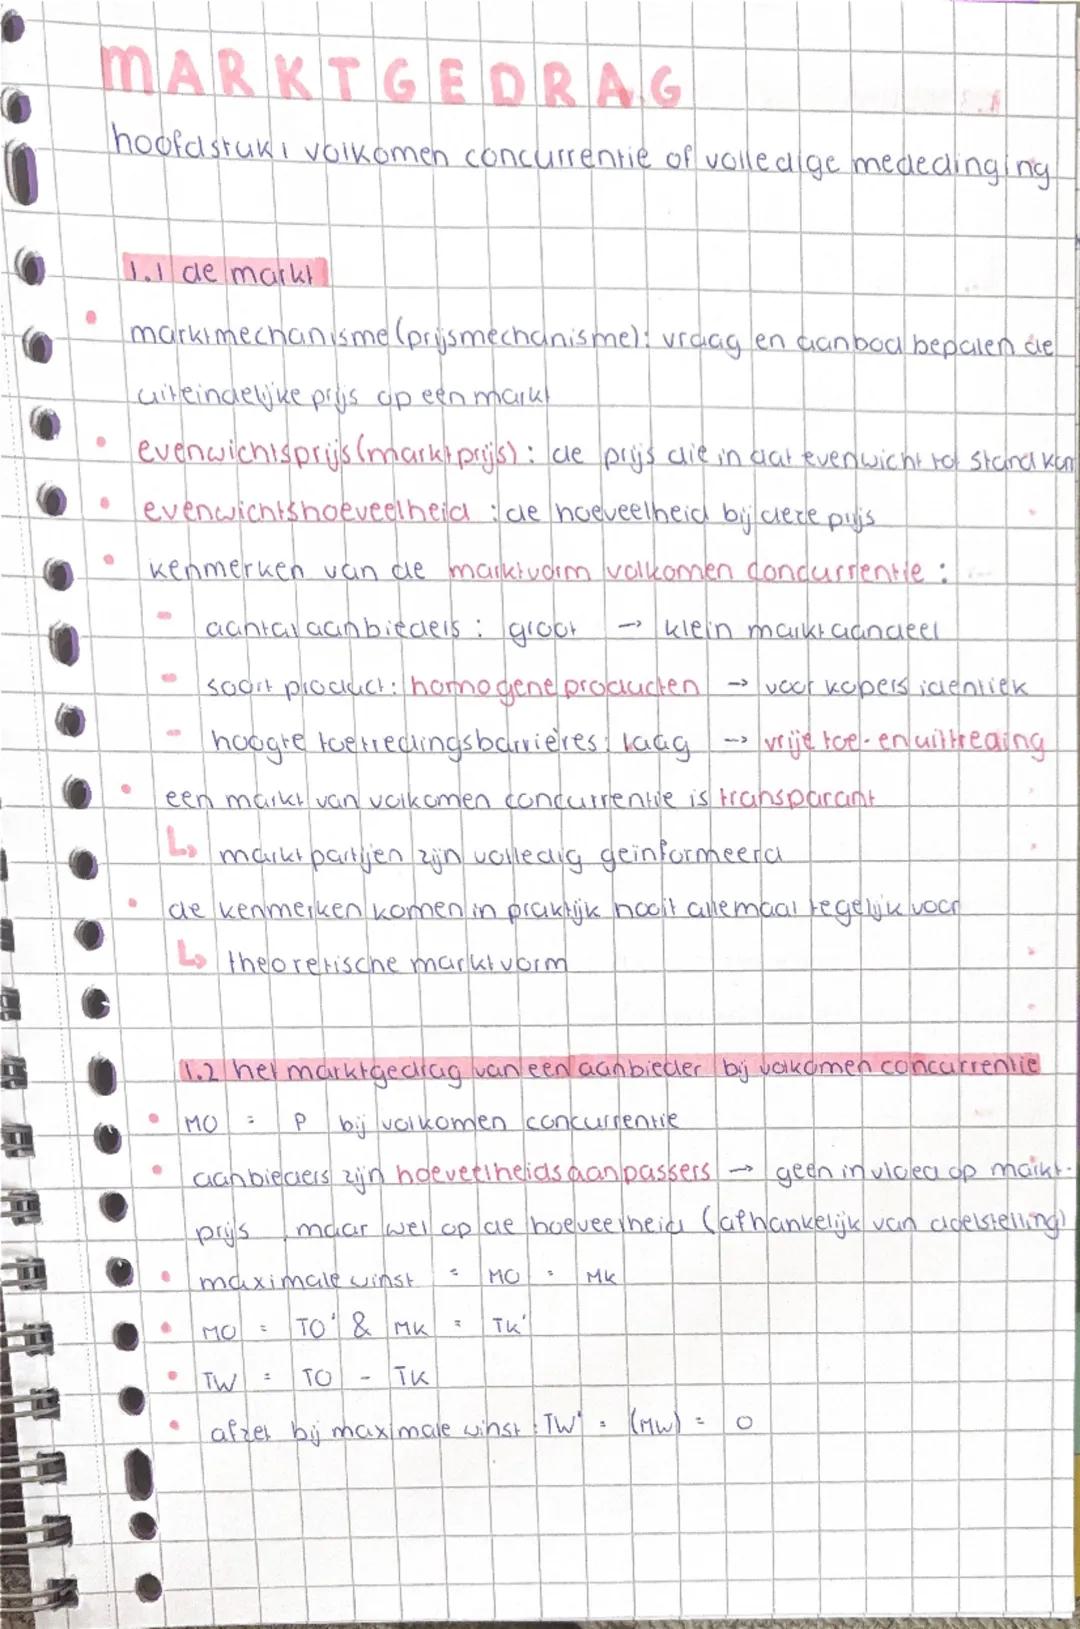 MARKTGEDRAG
hoofdstuk 1 volkomen concurrentie of volledige mededinging
1.1 de markt
• marktmechanisme (prijsmechanisme): vraag en aanbod bepalen de
uiteindelijke prijs op een markt
• evenwichtsprijs (marktprijs): de prijs die in dat evenwicht tot stand kom
• evenwichtshoeveelheid : de hoeveelheid bij deze prijs
• kenmerken van de marktvorm volkomen concurrentie :
- aantal aanbieders : groot → klein marktaandeel
- soort product: homogene producten → voor kopers identiek
- hoogte toetredingsbarrières: laag → vrije toe- en uittreding
• een markt van volkomen concurrentie is transparant
↳ marktpartijen zijn volledig geinformeerd
• de kenmerken komen in praktijk nooit allemaal tegelijk voor
↳ theoretische marktvorm
1.2 het marktgedrag van een aanbieder bij volkomen concurrentie
• MO = P bij volkomen concurrentie
• aanbieders zijn hoeveelheidsaanpassers → geen invloed op markt-
prijs, maar wel op de hoeveelheid (afhankelijk van doelstelling)
• maximale winst = MO = MK
• MO = TO' & MK = TK'
• TW = TO - TK
• afzet bij maximale winst : TW' = (MW) = 0